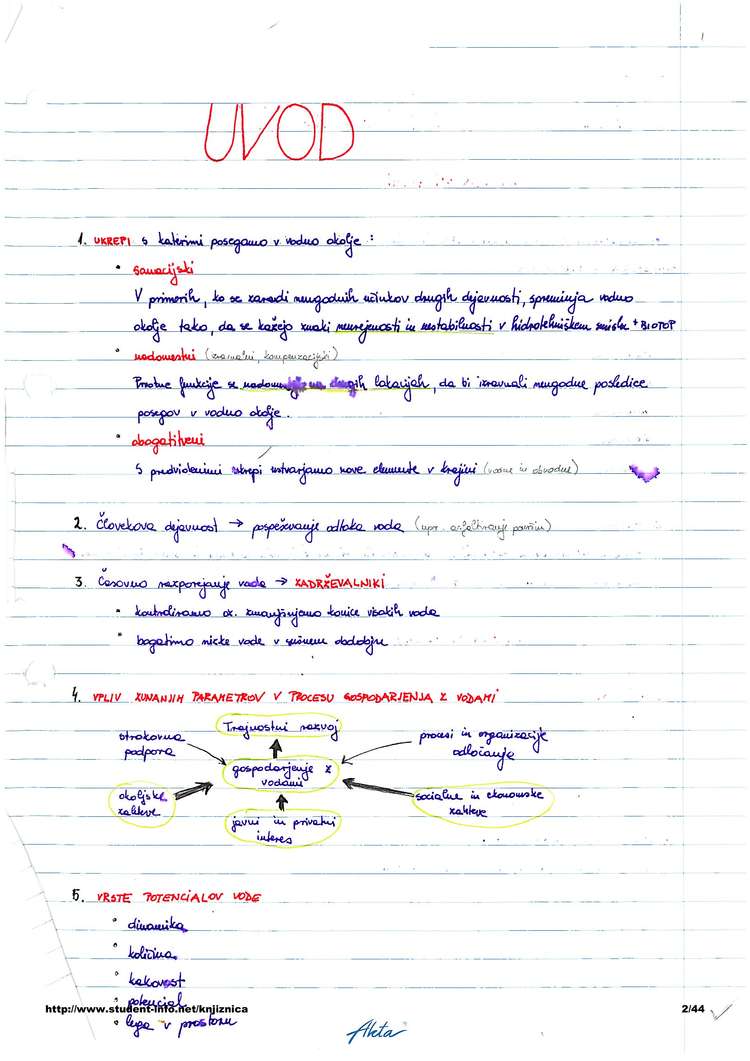 1
UVOD
1. UKREPI s katerimi posegamo v vodno okolje :
• sanacijski
V primerih, ko se zaradi neugodnih učinkov drugih dejavnosti, spreminja vodno
okolje tako, da se kažejo znaki neurejenosti in nestabilnosti v hidrotehniškem smislu + BIOTOP
• nadomestni (izravnalni, kompenzacijski)
Prvotne funkcije se na drugih lokacijah, da bi izravnali neugodne posledice
posegov v vodno okolje.
• obogatitveni
S predvidenimi ukrepi ustvarjamo nove elemente v krajini (vodne in obvodne)
2. Človekova dejavnost → pospeševanje odtoka voda (npr. površin)
3. Časovno razporejanje voda → ZADRŽEVALNIKI
• kontroliramo oz. zmanjšujemo konice visokih voda
• bogatimo nizke vode v sušnem obdobju
4. VPLIV ZUNANJIH PARAMETROV V PROCESU GOSPODARJENJA Z VODAMI
Trajnostni razvoj
strokovna
podpora
procesi in organizacije
odločanja
gospodarjenje z
vodami
okoljske
zahteve
javni in privatni
interes
socialne in ekonomske
zahteve
5. VRSTE POTENCIALOV VODE
• dinamika
• količina
• kakovost
• potencial
http://www.student-info.net/knjiznica
2/44
• lega v prostoru
Akta